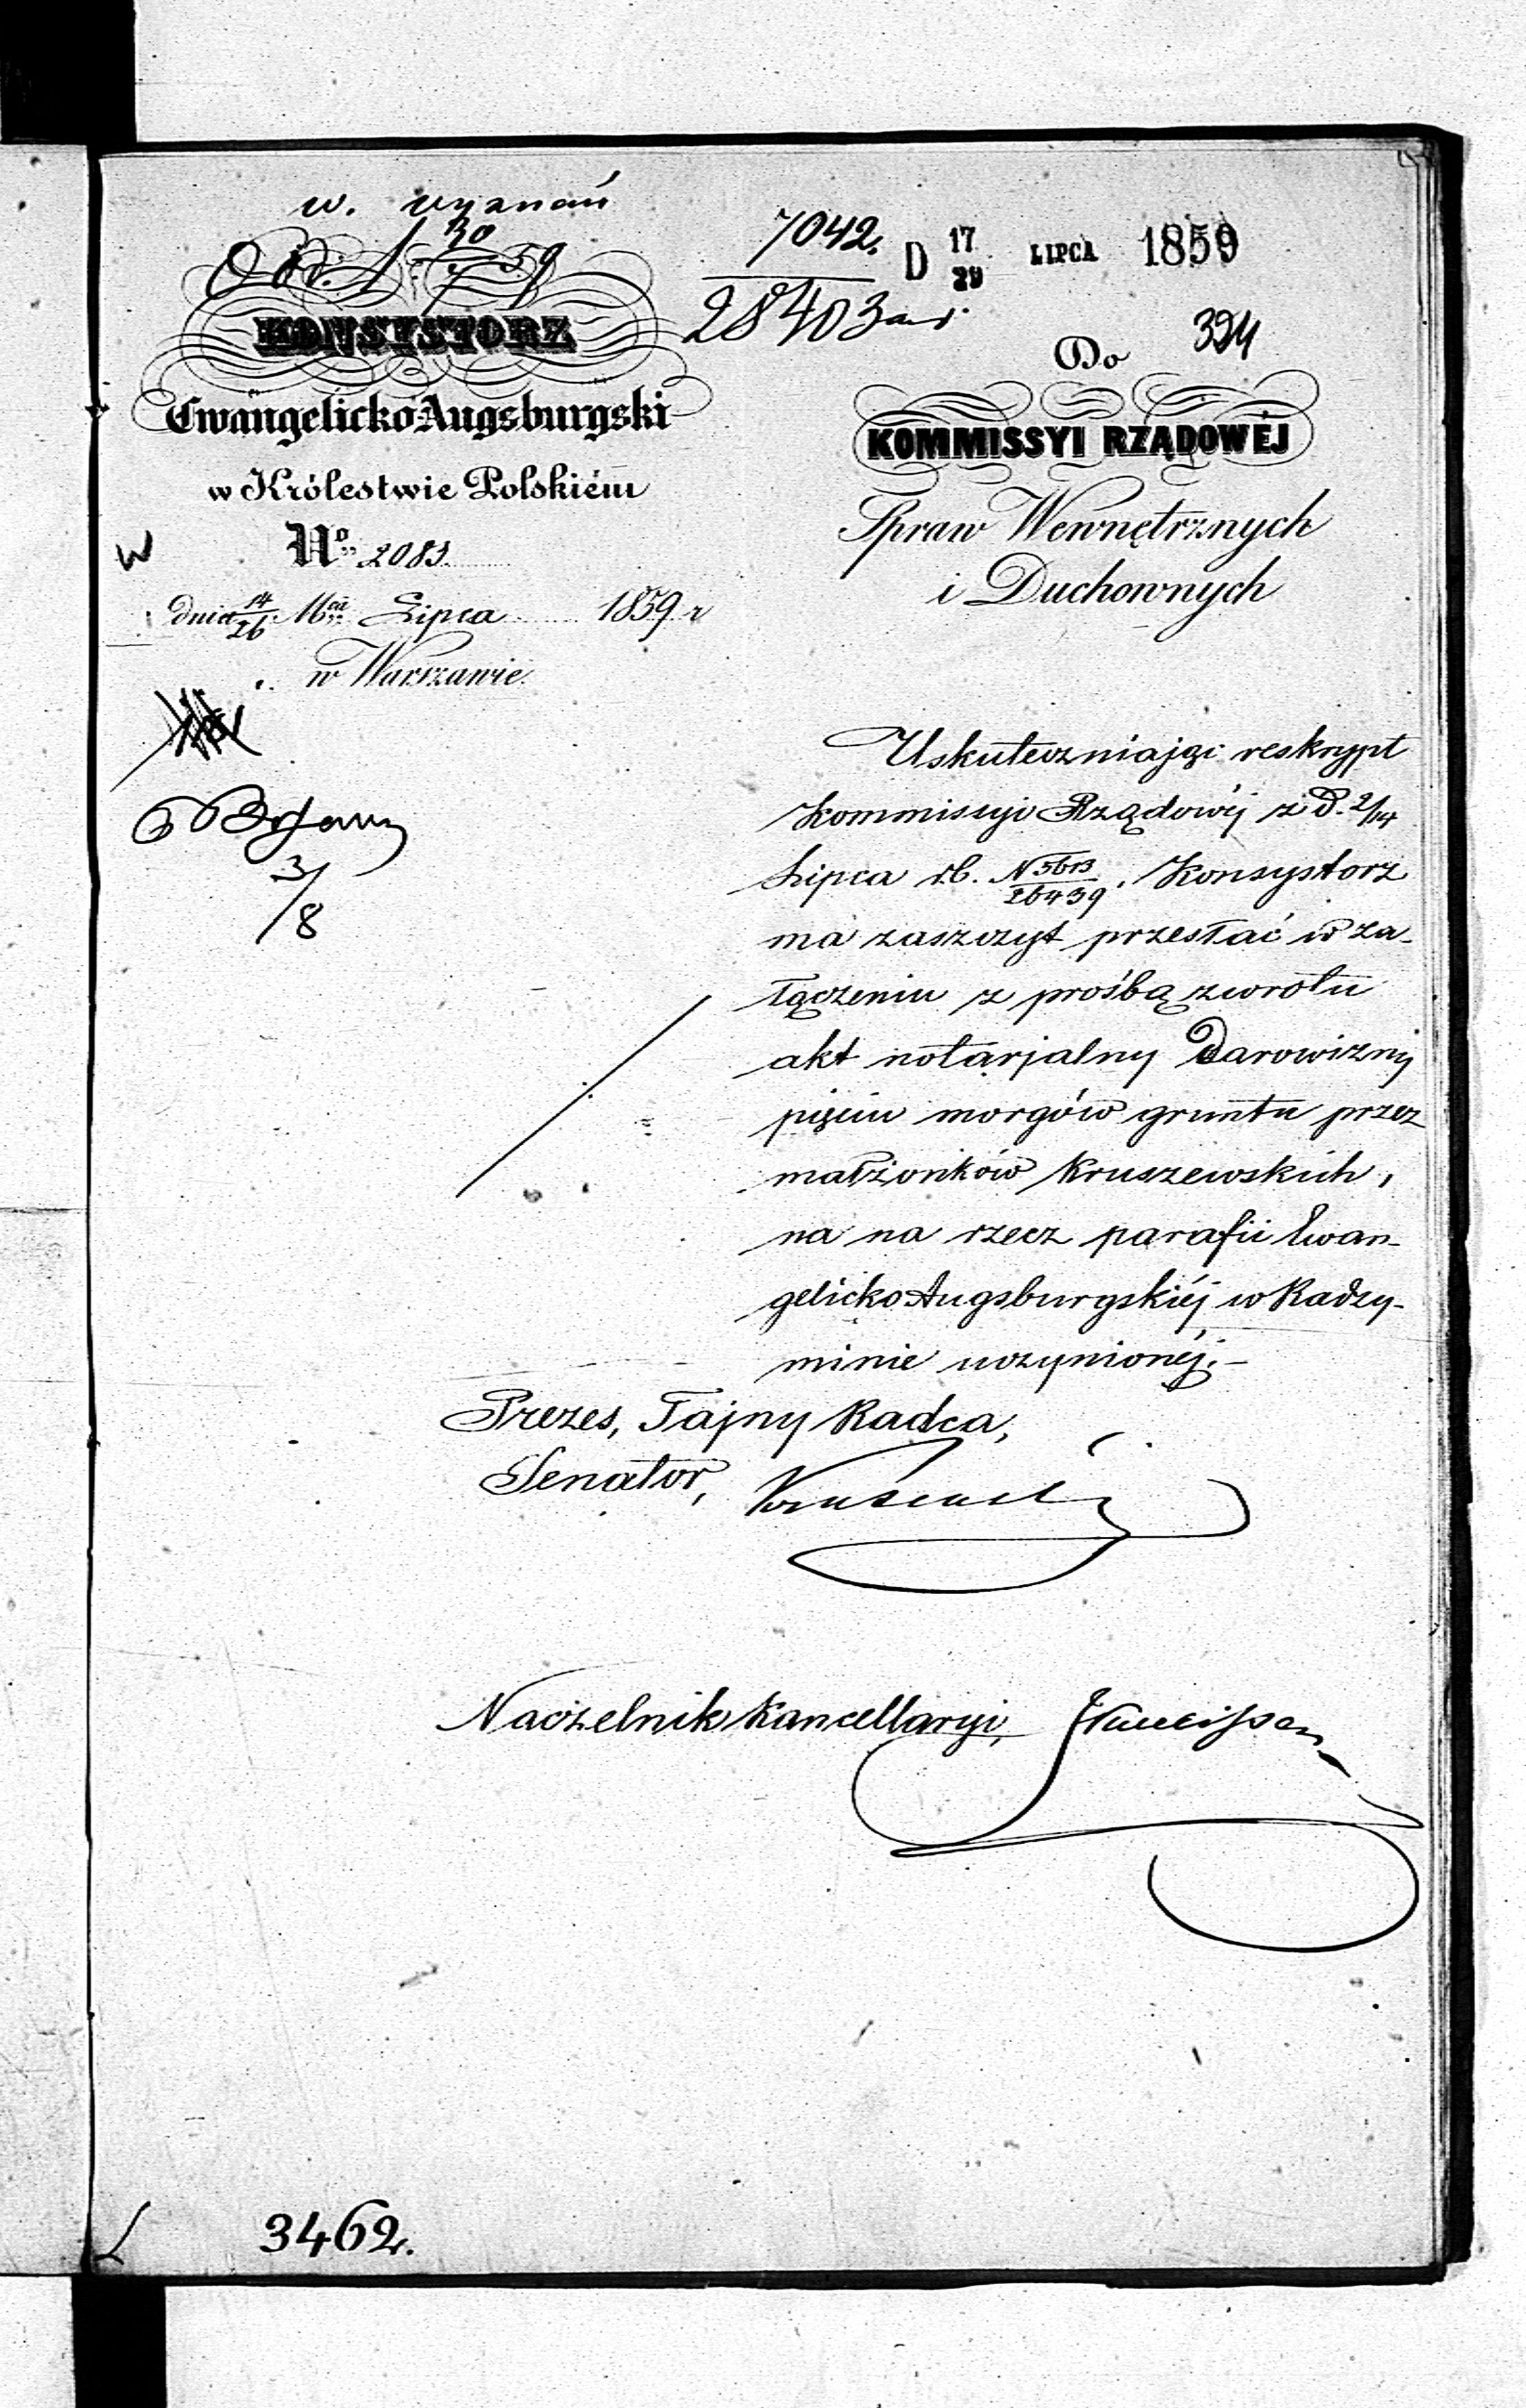 w. wyznań
7042.
28403
D 17/29 LIPCA 1859
394
KONSYSTORZ
Ewangelicko-Augsburgski
w Królestwie Polskiém
No 2083
dnia 14/26 Mca Lipca 1859 r
w Warszawie.
3/8
Do
KOMMISSYI RZĄDOWÉJ
Spraw Wewnętrznych
i Duchownych
Uskuteczniając reskrypt
Kommissyi Rządowéj z d. 2/14
Lipca r.b. N 5613/26439. Konsystorz
ma zaszczyt przesłać w za-
łączeniu z prośbą zwrotu
akt notarjalny Darowizny
pięciu morgów gruntu przez
małżonków Kruszewskich,
na na rzecz parafii Ewan-
gelicko Augsburgskiéj w Radzy-
minie uczynionéj.-
Prezes, Tajny Radca,
Senator,
Naczelnik Kancellaryi,
3462.